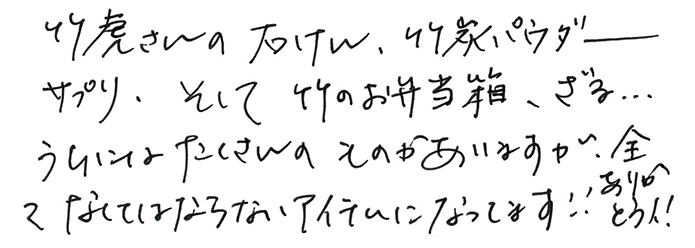 竹虎さんの石けん、竹炭パウダー
サプリ、そして竹のお弁当箱、ざる…
うちにはたくさんのものがありますが、全
てなくてはならないアイテムになってます!!
ありが
とう!!